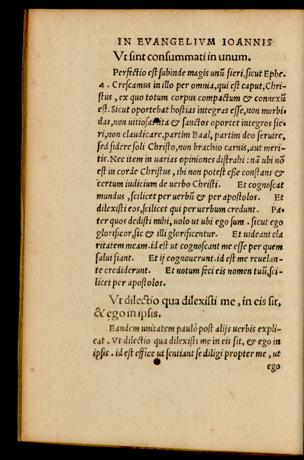 IN EVANGELIVM IOANNIS
Vt sint consummati in unum.
Perfectio est subinde magis unũ fieri, sicut Ephe.
4. Crescamus in illo per omnia, qui est caput, Chri-
stus, ex quo totum corpus compactum & connexũ
est. Sicut oportebat hostias integras esse, non morbi-
das, non uitiosas, ita & sanctos oportet integros fie-
ri, non claudicare, partim Baal, partim deo seruire,
sed fidere soli Christo, non brachio carnis, aut meri-
tis. Nec item in uarias opiniones distrahi: nã ubi nõ
est in corde Christus, ibi non potest eße constans &
certum iudicium de uerbo Christi. Et cognoscat
mundus, scilicet per uerbũ & per apostolos. Et
dilexisti eos, scilicet qui per uerbum credunt. Pa-
ter quos dedisti mihi, uolo ut ubi ego sum. sicut ego
glorificor, sic & illi glorificentur. Et uideant cla
ritatem meam. id est ut cognoscant me esse per quem
salui fiant. Et ij cognouerunt. id est me reuelan-
te crediderunt. Et notum feci eis nomen tuũ, sci-
licet per apostolos.
Vt dilectio qua dilexisti me, in eis sit,
& ego in ipsis.
Eandem unitatem pauló post alijs uerbis expli-
cat. Vt dilectio qua dilexisti me in eis sit, & ego in
ipsis. id est effice ut sentiant se diligi propter me, ut
ego